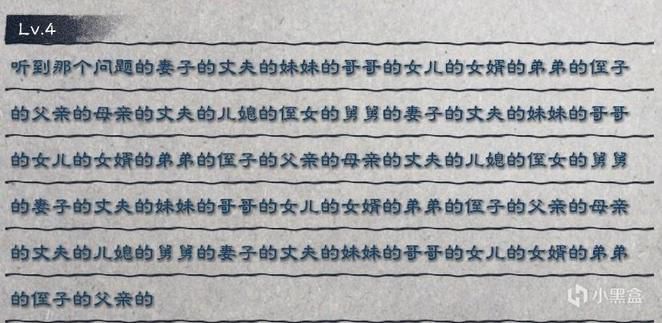 Lv.4
听到那个问题的妻子的丈夫的妹妹的哥哥的女儿的女婿的弟弟的侄子
的父亲的母亲的丈夫的儿媳的侄女的舅舅的妻子的丈夫的妹妹的哥哥
的女儿的女婿的弟弟的侄子的父亲的母亲的丈夫的儿媳的侄女的舅舅
的妻子的丈夫的妹妹的哥哥的女儿的女婿的弟弟的侄子的父亲的母亲
的丈夫的儿媳的舅舅的妻子的丈夫的妹妹的哥哥的女儿的女婿的弟弟
的侄子的父亲的
小黑盒